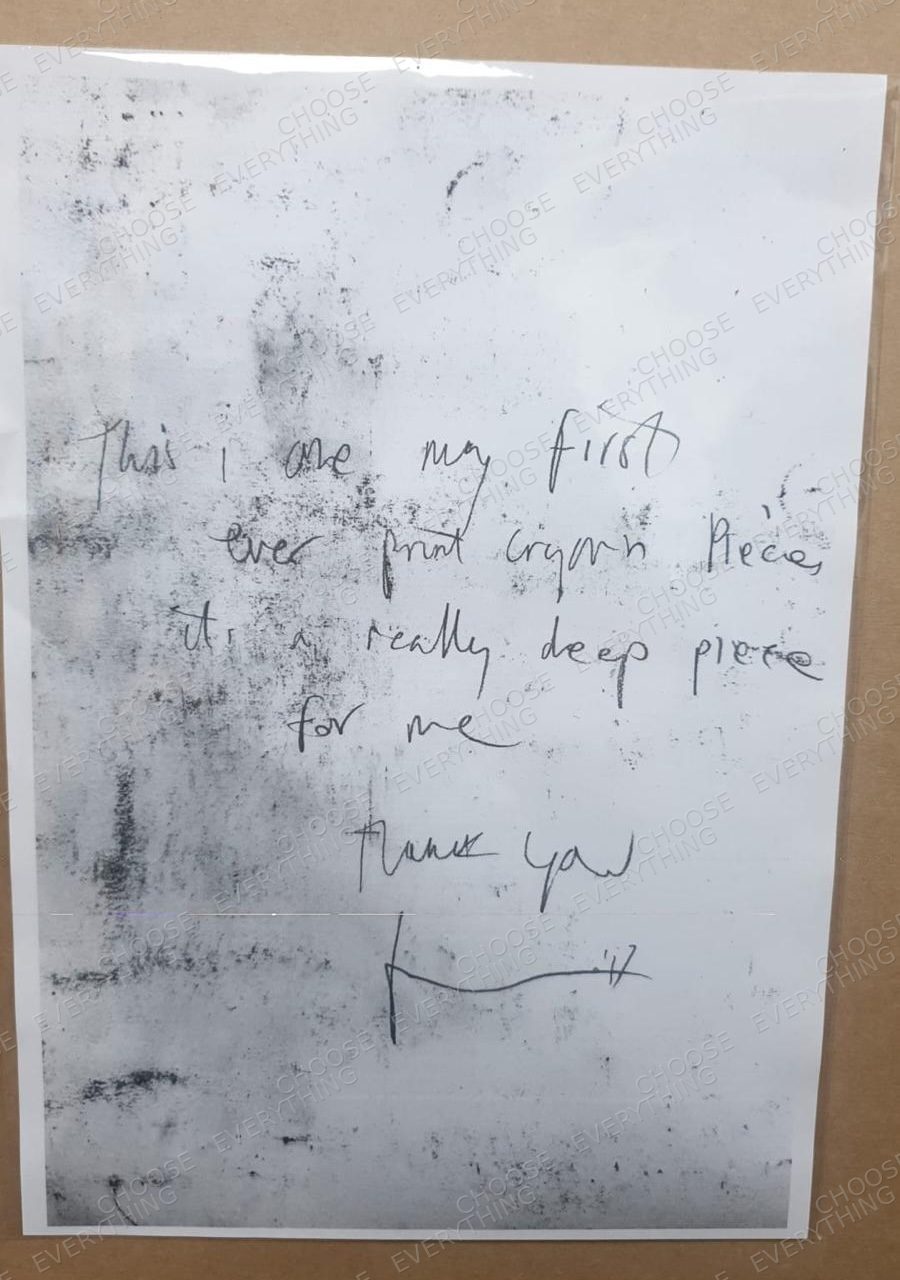 This i are my first
ever print crayon Piecies
its a really deep piece
for me
Thank you
'17
CHOOSE
EVERYTHING